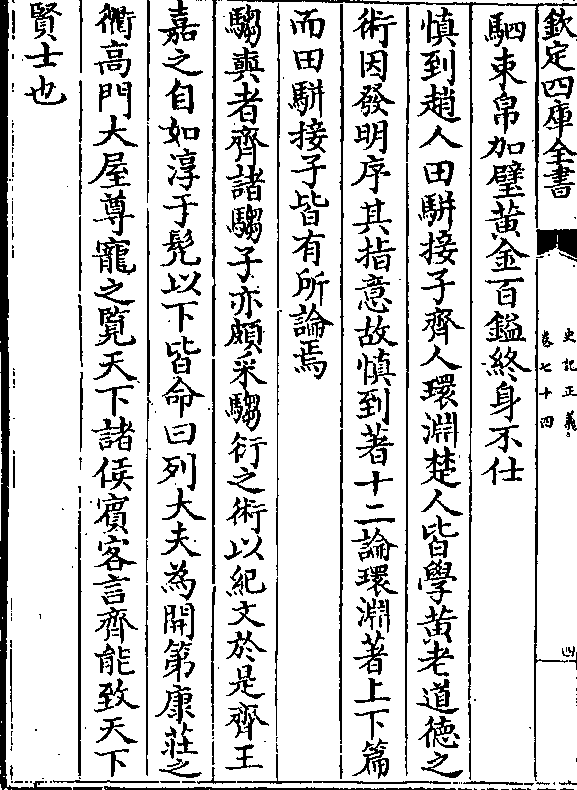 欽定四庫全書
史記正義
卷七十四
四
駟束帛加璧黃金百鎰終身不仕
慎到趙人田駢接子齊人環淵楚人皆學黃老道德之
術因發明序其指意故慎到著十二論環淵著上下篇
而田駢接子皆有所論焉
騶奭者齊諸騶子亦頗采騶衍之術以紀文於是齊王
嘉之自如淳于髠以下皆命曰列大夫為開第康莊之
衢高門大屋尊寵之覽天下諸侯賓客言齊能致天下
賢士也